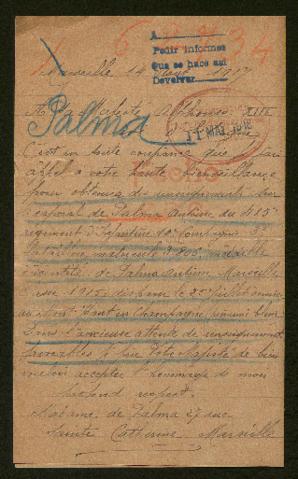 A
Pedir informes
Que se hace así
Devolver
Marseille 14
A Sa Majesté Alphonse XIII
Palma
11 MAI. 1918
C'est en toute confiance que
appel à votre haute bienveillance
pour obtenir des renseignements sur
caporal de Palma Antoine du 415e
régiment d'Infanterie 10e compagnie 3e
Bataillon, matricule médaille
d'identité: de Palma Antoine Marseille
1915, disparu le 25 juillet
en Champagne
Dans l'anxieuse attente de renseignements
favorables à Votre Majesté de bien
vouloir accepter l'hommage de mon
profond respect.
Madame de Palma 27 rue
Sainte Catherine Marseille